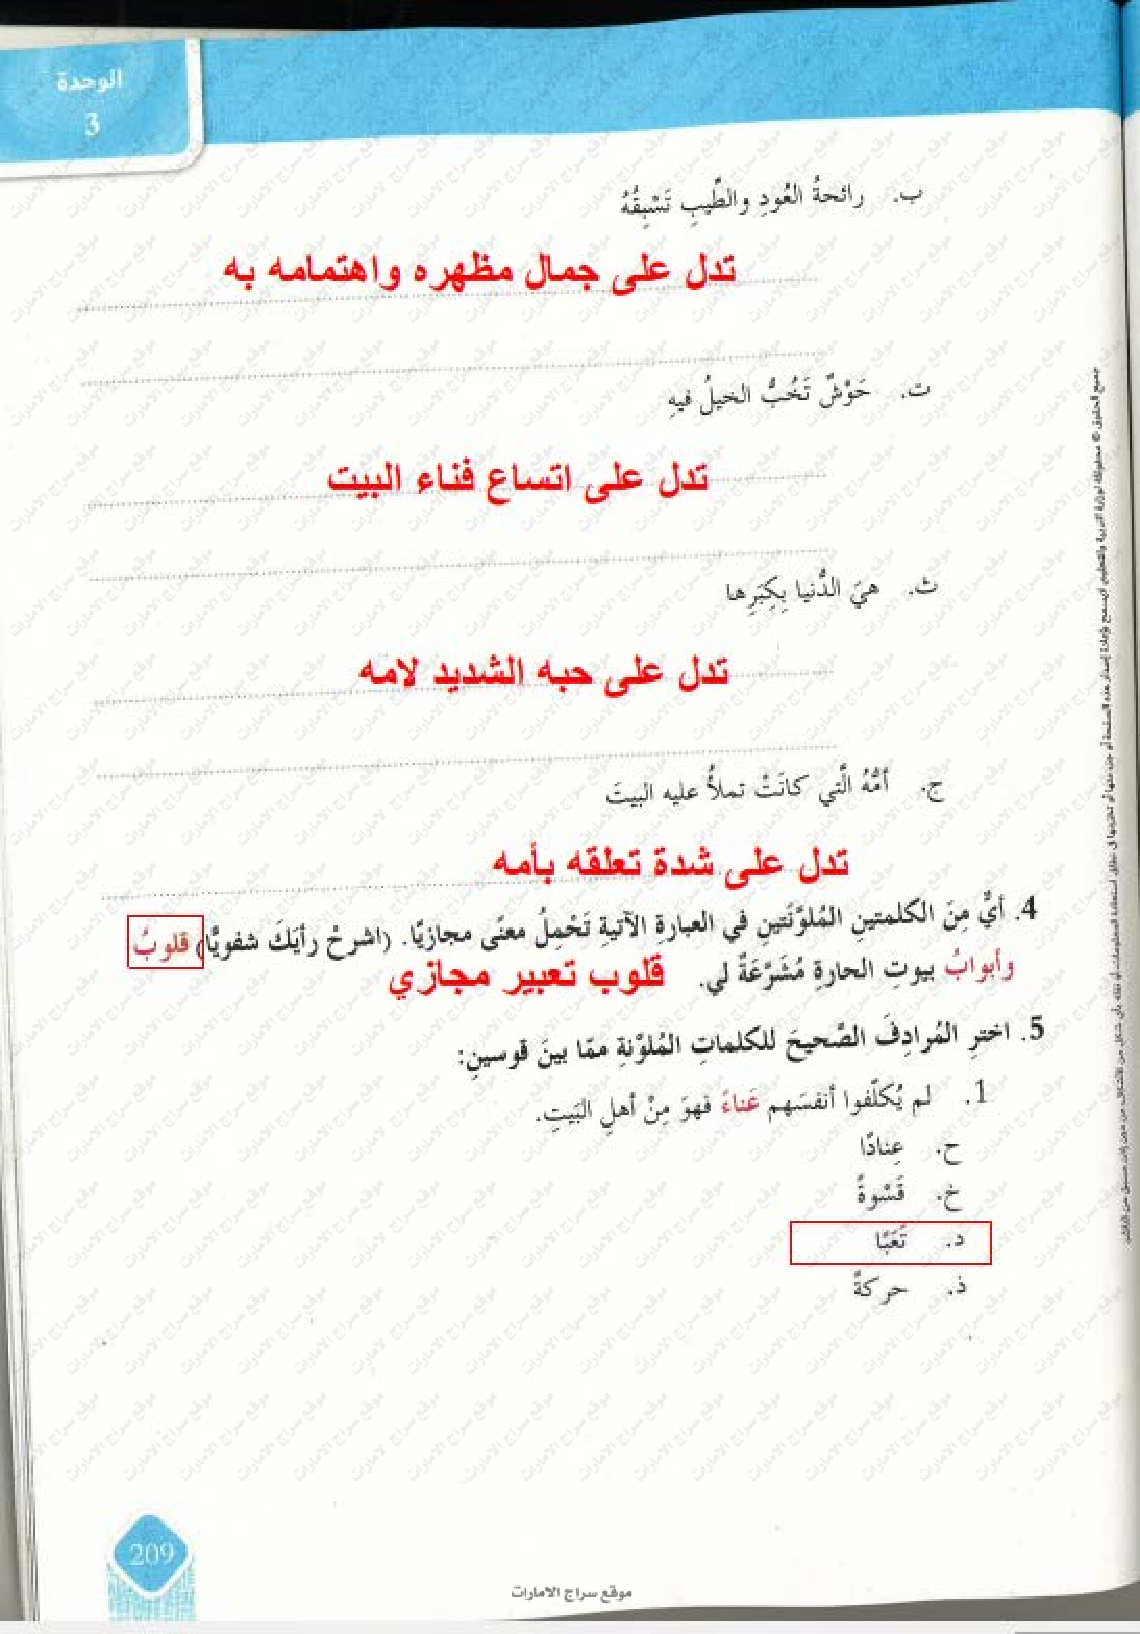 الوحدة
3
ب. رائحةُ العُودِ والطِّيبِ تَسْبِقُهُ
تدل على جمال مظهره واهتمامه به
ت. حَوْشٌ تَخُبُّ الخيلُ فيهِ
تدل على اتساع فناء البيت
ث. هيَ الدُّنيا بِكِبَرِها
تدل على حبه الشديد لامه
ج. أمُّهُ الَّتي كانَتْ تملأُ عليه البيتَ
تدل على شدة تعلقه بأمه
4. أيٌّ مِنَ الكلمتينِ المُلوَّنَتينِ في العبارةِ الآتيةِ تَحْمِلُ معنًى مجازيًّا. (اشرحْ رأيَكَ شفويًّا) قلوبُ
وأبوابُ بيوتِ الحارةِ مُشَرَّعَةٌ لي. قلوب تعبير مجازي
5. اخترِ المُرادِفَ الصَّحيحَ للكلماتِ المُلوَّنةِ ممّا بينَ قوسينِ:
1. لم يُكلّفوا أنفسَهم عَناءً فهوَ مِنْ أهلِ البَيتِ.
ح. عِنادًا
خ. قَسْوةً
د. تَعَبًا
ذ. حركةً
209
موقع سراج الامارات